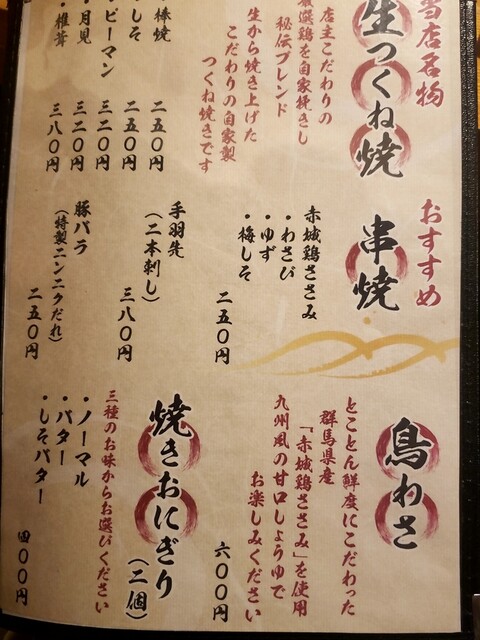 当店名物
生つくね焼
店主こだわりの
厳選鶏を自家挽きし
秘伝ブレンド
生から焼き上げた
こだわりの自家製
つくね焼きです
・棒焼 二五〇円
・しそ 二五〇円
・ピーマン 三二〇円
・月見 三二〇円
・椎茸 三八〇円
おすすめ
串焼
赤城鶏ささみ
・わさび
・ゆず
・梅しそ
二五〇円
手羽先
(二本刺し)
三八〇円
豚バラ
(特製ニンニクだれ)
二五〇円
鳥わさ
とことん鮮度にこだわった
群馬県産
「赤城鶏ささみ」を使用
九州風の甘口しょうゆで
お楽しみください
六〇〇円
焼きおにぎり
(二個)
三種のお味からお選びください
・ノーマル
・バター
・しそバター
四〇〇円